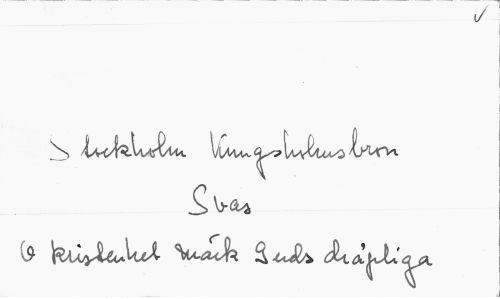 Stockholm Kungsholmsbron
Svas
O kristenhet märk Guds dråpliga